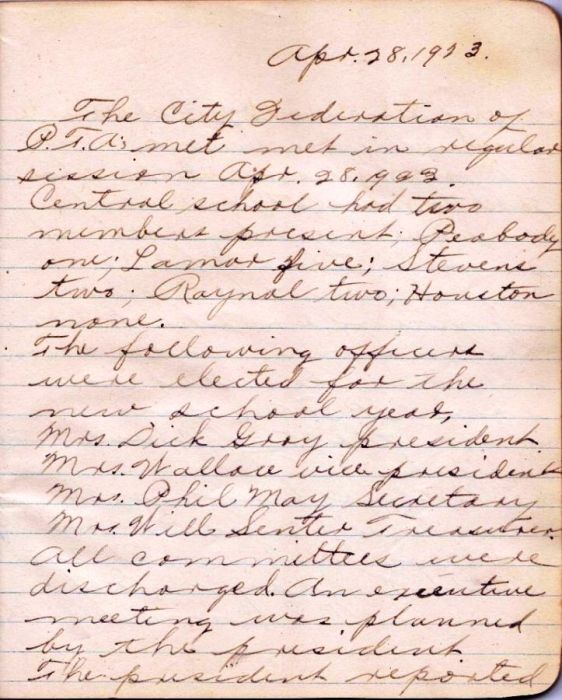 Apr. 28, 1923.
The City Federation of
P.T.A's met met in regular
session Apr. 28. 923
Central school had two
members present; Peabody
one; Lamar five; Stevens
two; Raynal two; Houston
none.
The following officers
were elected for the
new school year,
Mrs. Dick Gray president
Mrs. Wallace vice president
Mrs. Phil May Secretary
Mrs. Will Senter Treasurer.
All committees were
discharged. An executive
meeting was planned
by the president
The president reported